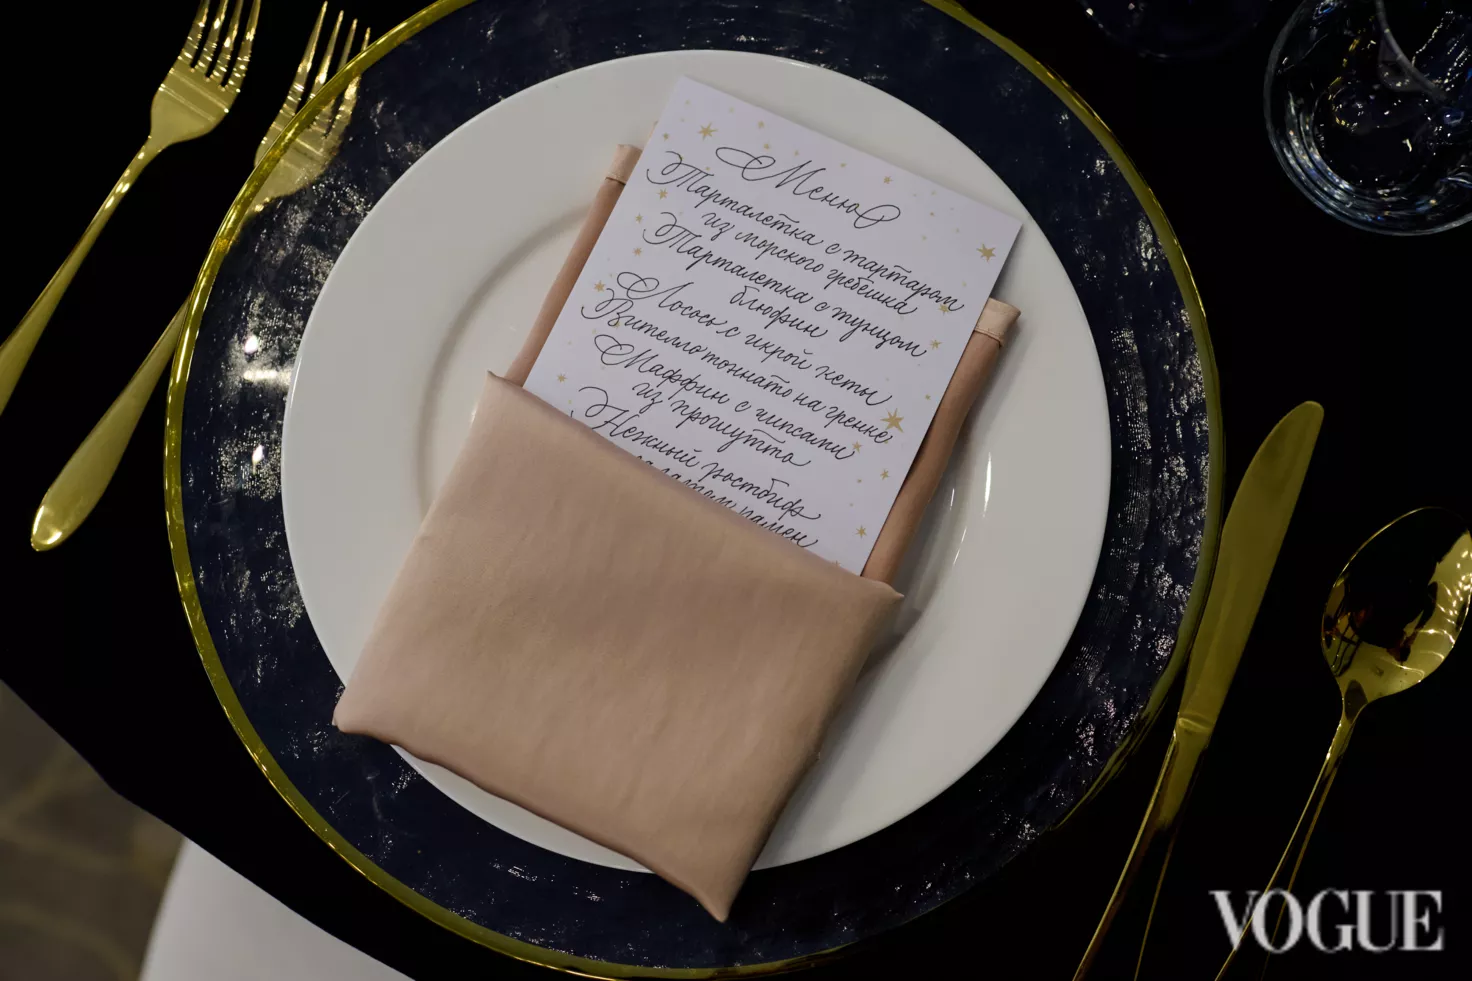 Меню
Тарталетка с тартаром
из морского гребешка
Тарталетка с тунцом
блюфин
Лосось с икрой кеты
Вителло тоннато на гренке
Маффин с чипсами
из прошутто
Нежный ростбиф
VOGUE